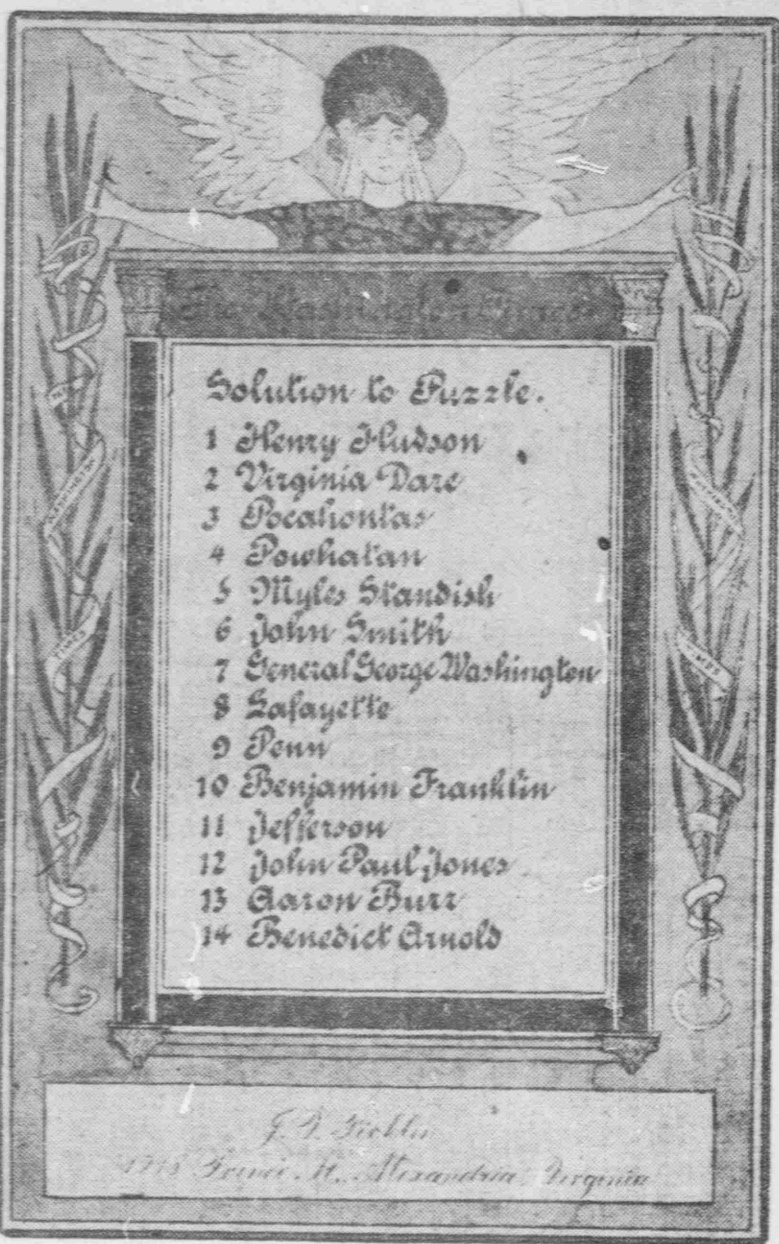 The Washington Times
Solution to Puzzle.
1 Henry Hudson
2 Virginia Dare
3 Pocahontas
4 Powhatan
5 Myles Standish
6 John Smith
7 General George Washington
8 Lafayette
9 Penn
10 Benjamin Franklin
11 Jefferson
12 John Paul Jones
13 Aaron Burr
14 Benedict Arnold
WASHINGTON
TIMES
TIMES
Alexandria, Virginia